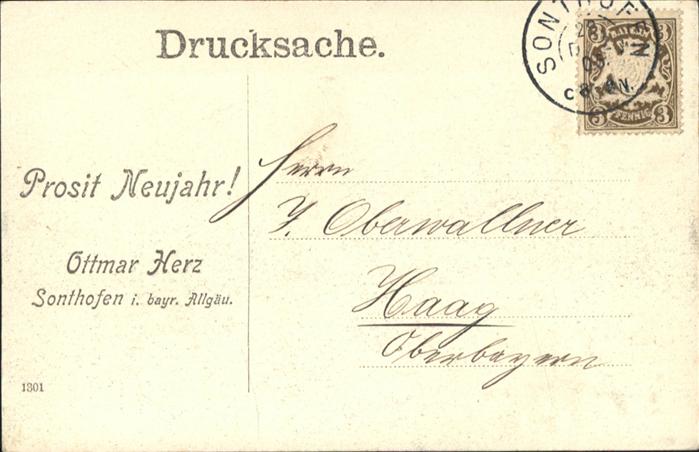 Drucksache.
SONTHOFEN
BAYERN
3 PFENNIG 3
Prosit Neujahr!
Ottmar Herz
Sonthofen i. bayr. Allgäu.
Herrn
J. Oberwallner
Haag
Oberbayern
1301